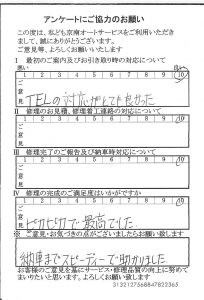 アンケートにご協力のお願い
この度は、私ども京南オートサービスをご利用いただき
まして、誠にありがとうございます。
ご意見等、よろしくお願いいたします
Ⅰ 最初のご案内及びお引き取り時の対応について
悪い 良い
1 2 3 4 5 6 7 8 9 10
ご意見
TELの対応がとても良かった
Ⅱ 修理のお見積、修理着工連絡の対応について
1 2 3 4 5 6 7 8 9 10
ご意見
Ⅲ 修理完了のご報告及び納車時対応について
1 2 3 4 5 6 7 8 9 10
ご意見
Ⅳ 修理の完成のご満足度はいかがですか
1 2 3 4 5 6 7 8 9 10
ご意見
ピカピカで最高でした
※ ご意見・お気づきの点がございましたらお願い致します
納車までスピーディーで助かりました
お客様のご意見を基にサービス・修理品質の向上に努めて
まいりたいと思います。よろしくお願い致します。
3132127368847822365